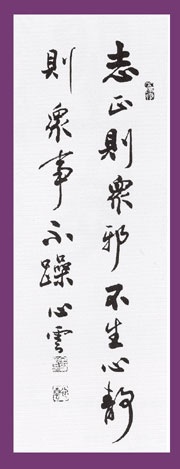 志正則衆邪不生心静
則衆事不躁心雲